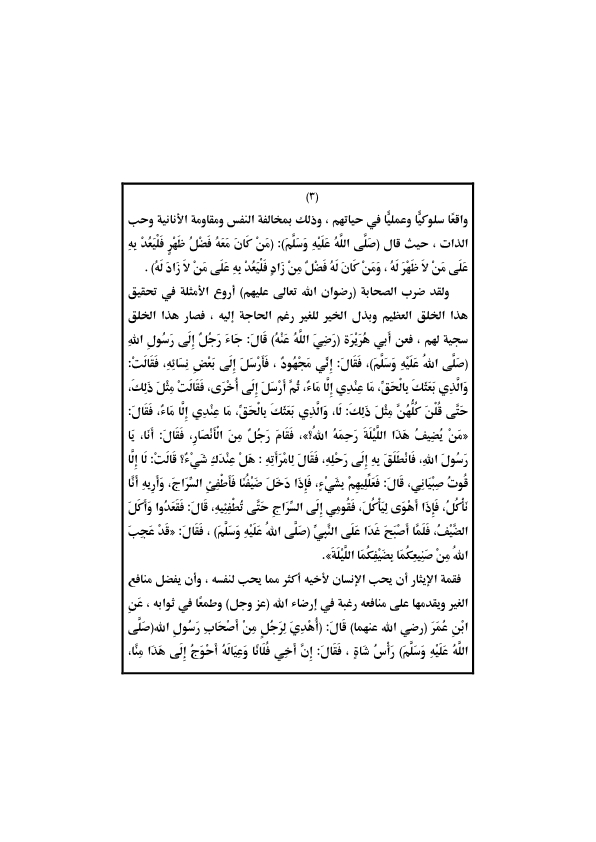 (٣)
واقعًا سلوكيًّا وعمليًّا في حياتهم ، وذلك بمخالفة النفس ومقاومة الأنانية وحب
الذات ، حيث قال (صَلَّى اللَّهُ عَلَيْهِ وَسَلَّمَ): (مَنْ كَانَ مَعَهُ فَضْلُ ظَهْرٍ فَلْيَعُدْ بِهِ
عَلَى مَنْ لاَ ظَهْرَ لَهُ ، وَمَنْ كَانَ لَهُ فَضْلٌ مِنْ زَادٍ فَلْيَعُدْ بِهِ عَلَى مَنْ لاَ زَادَ لَهُ) .
ولقد ضرب الصحابة (رضوان الله تعالى عليهم) أروع الأمثلة في تحقيق
هذا الخلق العظيم وبذل الخير للغير رغم الحاجة إليه ، فصار هذا الخلق
سجية لهم ، فعن أَبِي هُرَيْرَةَ (رَضِيَ اللَّهُ عَنْهُ) قَالَ: جَاءَ رَجُلٌ إِلَى رَسُولِ اللهِ
(صَلَّى اللهُ عَلَيْهِ وَسَلَّمَ)، فَقَالَ: إِنِّي مَجْهُودٌ ، فَأَرْسَلَ إِلَى بَعْضِ نِسَائِهِ، فَقَالَتْ:
وَالَّذِي بَعَثَكَ بِالْحَقِّ، مَا عِنْدِي إِلَّا مَاءٌ، ثُمَّ أَرْسَلَ إِلَى أُخْرَى، فَقَالَتْ مِثْلَ ذَلِكَ،
حَتَّى قُلْنَ كُلُّهُنَّ مِثْلَ ذَلِكَ: لَا، وَالَّذِي بَعَثَكَ بِالْحَقِّ، مَا عِنْدِي إِلَّا مَاءٌ، فَقَالَ:
«مَنْ يُضِيفُ هَذَا اللَّيْلَةَ رَحِمَهُ اللهُ؟»، فَقَامَ رَجُلٌ مِنَ الْأَنْصَارِ، فَقَالَ: أَنَا، يَا
رَسُولَ اللهِ، فَانْطَلَقَ بِهِ إِلَى رَحْلِهِ، فَقَالَ لِامْرَأَتِهِ : هَلْ عِنْدَكِ شَيْءٌ؟ قَالَتْ: لَا إِلَّا
قُوتُ صِبْيَانِي، قَالَ: فَعَلِّلِيهِمْ بِشَيْءٍ، فَإِذَا دَخَلَ ضَيْفُنَا فَأَطْفِئِ السِّرَاجَ، وَأَرِيهِ أَنَّا
نَأْكُلُ، فَإِذَا أَهْوَى لِيَأْكُلَ، فَقُومِي إِلَى السِّرَاجِ حَتَّى تُطْفِئِيهِ، قَالَ: فَقَعَدُوا وَأَكَلَ
الضَّيْفُ، فَلَمَّا أَصْبَحَ غَدَا عَلَى النَّبِيِّ (صَلَّى اللهُ عَلَيْهِ وَسَلَّمَ) ، فَقَالَ: «قَدْ عَجِبَ
اللهُ مِنْ صَنِيعِكُمَا بِضَيْفِكُمَا اللَّيْلَةَ».
فقمة الإيثار أن يحب الإنسان لأخيه أكثر مما يحب لنفسه ، وأن يفضل منافع
الغير ويقدمها على منافعه رغبة في إرضاء الله (عز وجل) وطمعًا في ثوابه ، عَنِ
ابْنِ عُمَرَ (رضي الله عنهما) قَالَ: (أُهْدِيَ لِرَجُلٍ مِنْ أَصْحَابِ رَسُولِ اللهِ(صَلَّى
اللَّهُ عَلَيْهِ وَسَلَّمَ) رَأْسُ شَاةٍ ، فَقَالَ: إِنَّ أَخِي فُلَانًا وَعِيَالَهُ أَحْوَجُ إِلَى هَذَا مِنَّا،